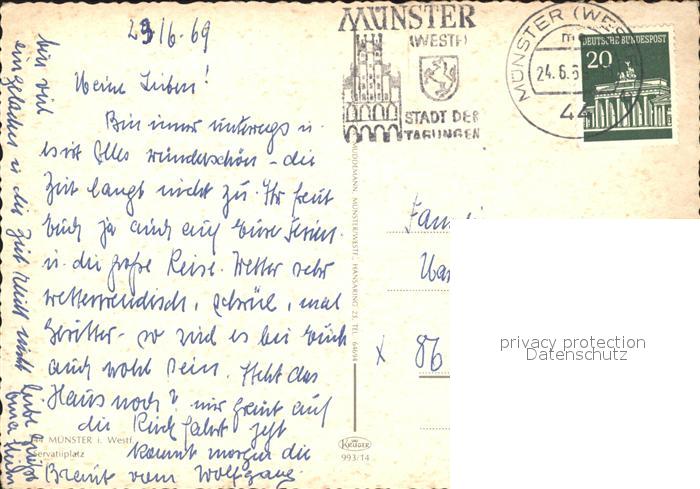 23/6.69
Meine Lieben!
Bin immer unterwegs u.
es ist alles wunderschön - die
Zeit langt nicht zu. Ihr freut
Euch ja auch auf Eure Ferien
u. die große Reise. Wetter sehr
wetterwendisch, schwül, mal
Gewitter - so wird es bei Euch
auch wohl sein. Steht das
Haus noch? mir graut auf
die Rückfahrt jetzt
kommt morgen die
Braut vom Wolfgang.
bin viel
eingeladen u. die Zeit reicht nicht
MÜNSTER i. Westf.
Servatiiplatz
MÜNSTER
(WESTF)
STADT DER
TAGUNGEN
MÜNSTER (WES
24.6.6
44
DEUTSCHE BUNDESPOST
20
MÜNSTER/WESTF., HANSARING 23, TEL. 64694
KRÜGER
993/14
Fam
86
privacy protection
Datenschutz